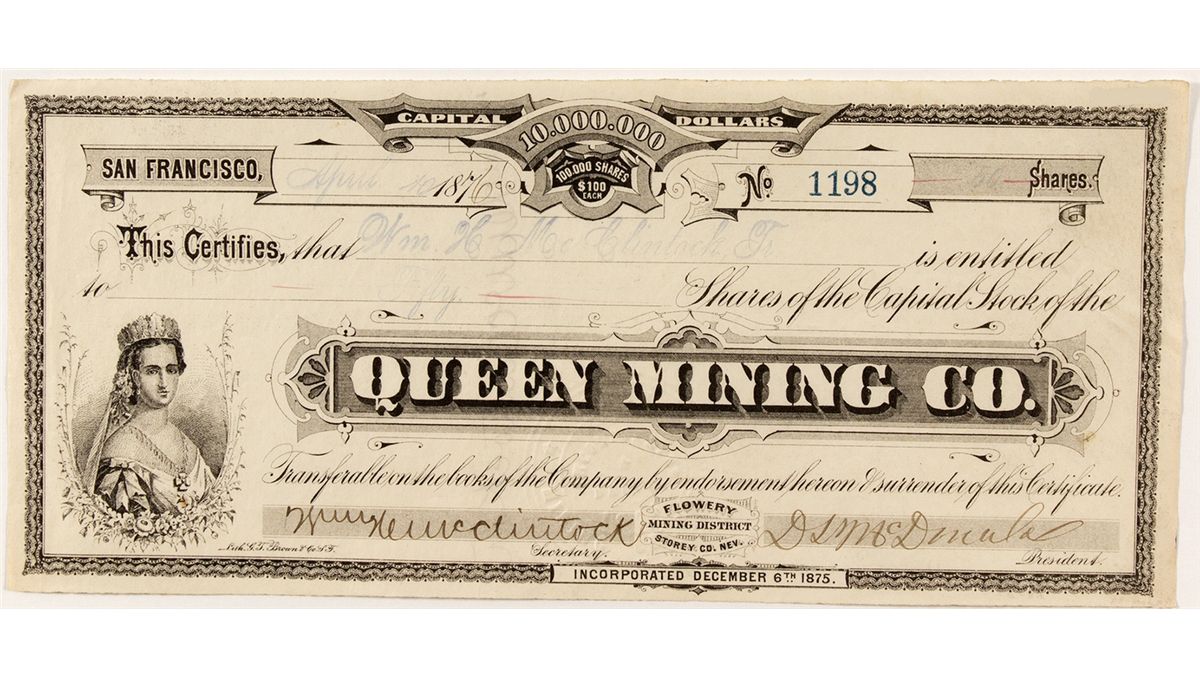 CAPITAL 10.000.000 DOLLARS
100.000 SHARES
$100
EACH
SAN FRANCISCO, April 10 1876 No 1198 50 Shares.
This Certifies, that Wm. H. McClintock Tr is entitled
to Fifty Shares of the Capital Stock of the
QUEEN MINING CO.
Transferable on the books of the Company by endorsement thereon & surrender of this Certificate.
Wm H McClintock Secretary.
FLOWERY
MINING DISTRICT
STOREY CO. NEV.
McDonald President.
Lith. G.T. Brown & Co. S.F.
INCORPORATED DECEMBER 6TH 1875.